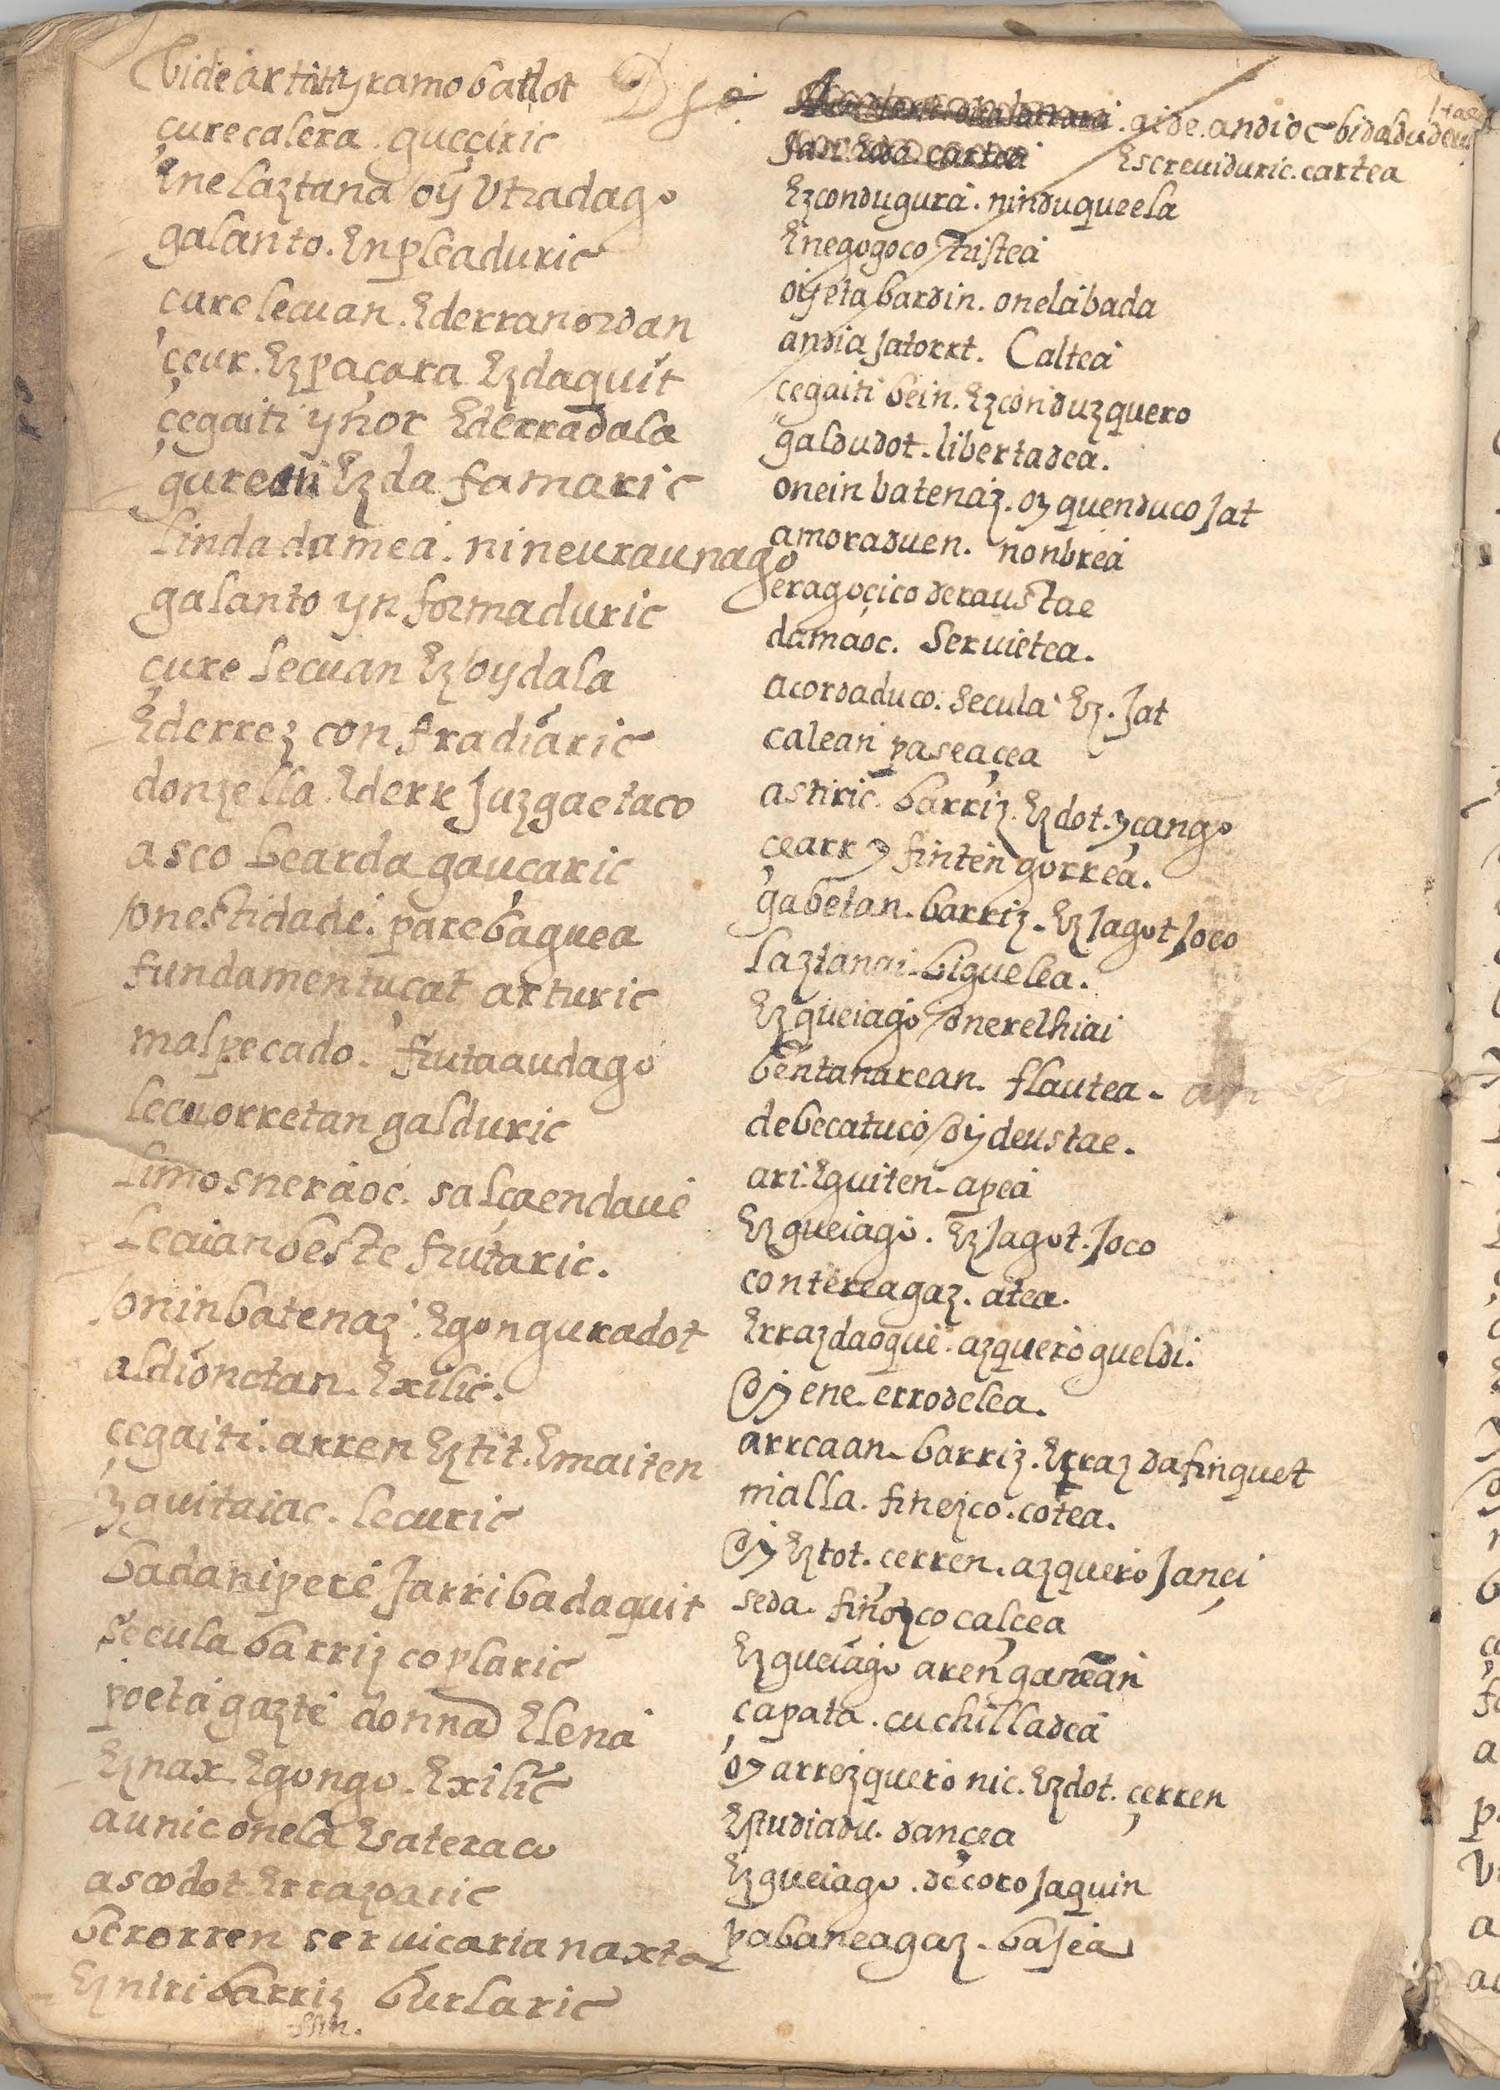 bide artu yramo batdot
çurecalera gueçiric
Ene laztana oy Vtradago
galanto. Enpleaduric
çure lecuan. Ederranordan
çeur. Ezpaçara Ezdaquit
çegaiti yñor Ederradala
gurean Ezda famaric
linda damea. nineuraunago
galanto ynformaduric
çure lecuan Ez oydala
Ederrez confradiaric
donzella Ederr Juzgaetaco
asco bearda gauçaric
onestidade. parebaguea
fundamentuçat arturic
malpecado. frutaaudago
lecuorretan galduric
limosneraoc. salçaendaue
lecuan beste frutaric.
oninbatenaz. Egonguradot
aldionetan. Exilic.
çegaiti. arren Eztit. Emaiten
zauitaiac. lecuric
badanipere Jarribadaquit
secula barriz coplaric
poeta gazte donna Elena
Eznax Egongo. Exilic
aunic onela Esateraco
ascodot Errazoaric
berorren seruiçarianaxta
Ezniri barriz burlaric
fin.
Dse.
aide. andioc bidaldudeust
Escreuiduric. cartea
Ezcondugura. ninduqueela
Enegogoco Tristea
oyeta bardin. onelabada
andia Jatorrt. Caltea
çegaiti bein. Ezconduzquero
galdudot. libertadea.
onein batenaz. oy quenduco Jat
amoraduen. nonbrea
eragoçico deraustae
damaoc. Seruietea.
acordaduco. secula Ez. Jat
calean paseaçea
astiric. barriz. Ezdot. yçango
çearr y finten gorrea.
gabetan. barriz. Ez Jagot Joco
laztanai. biguelea.
Ezgueiago onerelhiai
bentanarean. flautea.
debecatuco oy deustae.
ari. Eguiten. apea
Ezgueiago. EzJagot. Joco
contereagaz. atea.
Errazdaoque. azquero gueldi.
Oy ene. errodelea.
arrcaan. barriz. Erraz dafinquet
malla. finezco. cotea.
Oy Eztot. cerren. azquero Jançi
seda. finozco calçea
Ezgueiago aren ganean
capata. cuchilladea
oy arrezquero nic. Ezdot. çerren
Estudiadu. dançea
Ezgueiago. decoro Jaquin
pabaneagaz. baJea